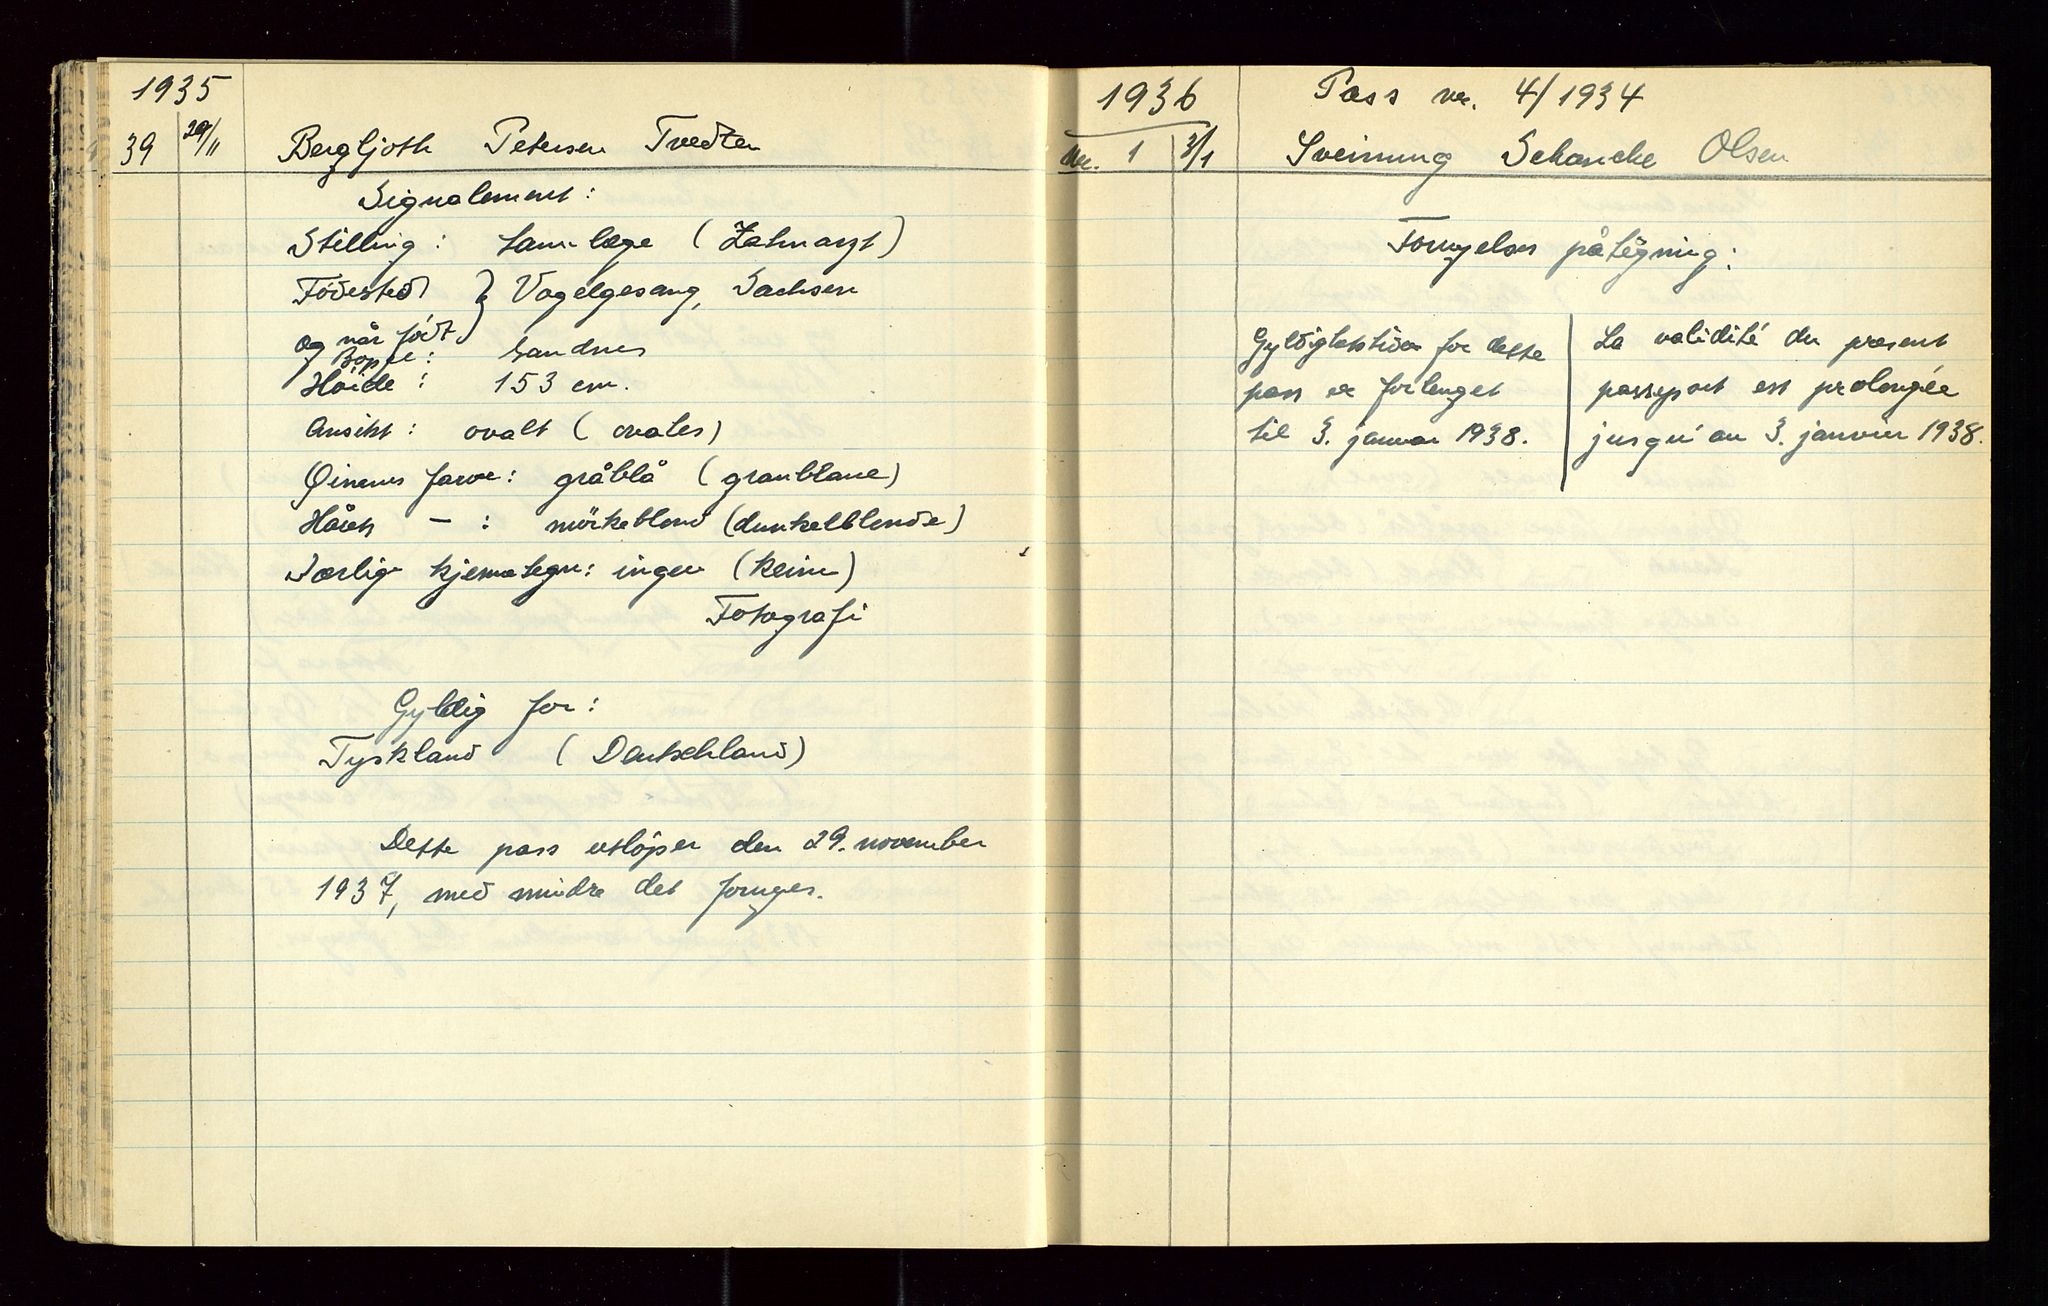 1935
39 29/11 Bergljoth Petersen Tvedten
Signalement:
Stilling: tannlæge (Zahnarzt)
Födested } Vogelgesang, Sachsen
og når födt
Bopæl: Sandnes
Höide: 153 cm.
Ansikt: ovalt (ovales)
Öinenes farve: gråblå (graublaue)
Hårets — : mörkeblond (dunkelblonde)
Særlige kjennetegn: ingen (keine)
Fotografi
Gyldig for:
Tyskland (Deutschland)
Dette pass utlöper den 29. november
1937, med mindre det fornyes.
1936 Pass nr. 4/1934
Nr. 1 3/1 Sveinung Schancke Olsen
Fornyelses påtegning:
Gyldighetstiden for dette
pass er forlenget
til 3. januar 1938.
La validité du present
passeport est prolongée
jusqu'au 3. janvier 1938.